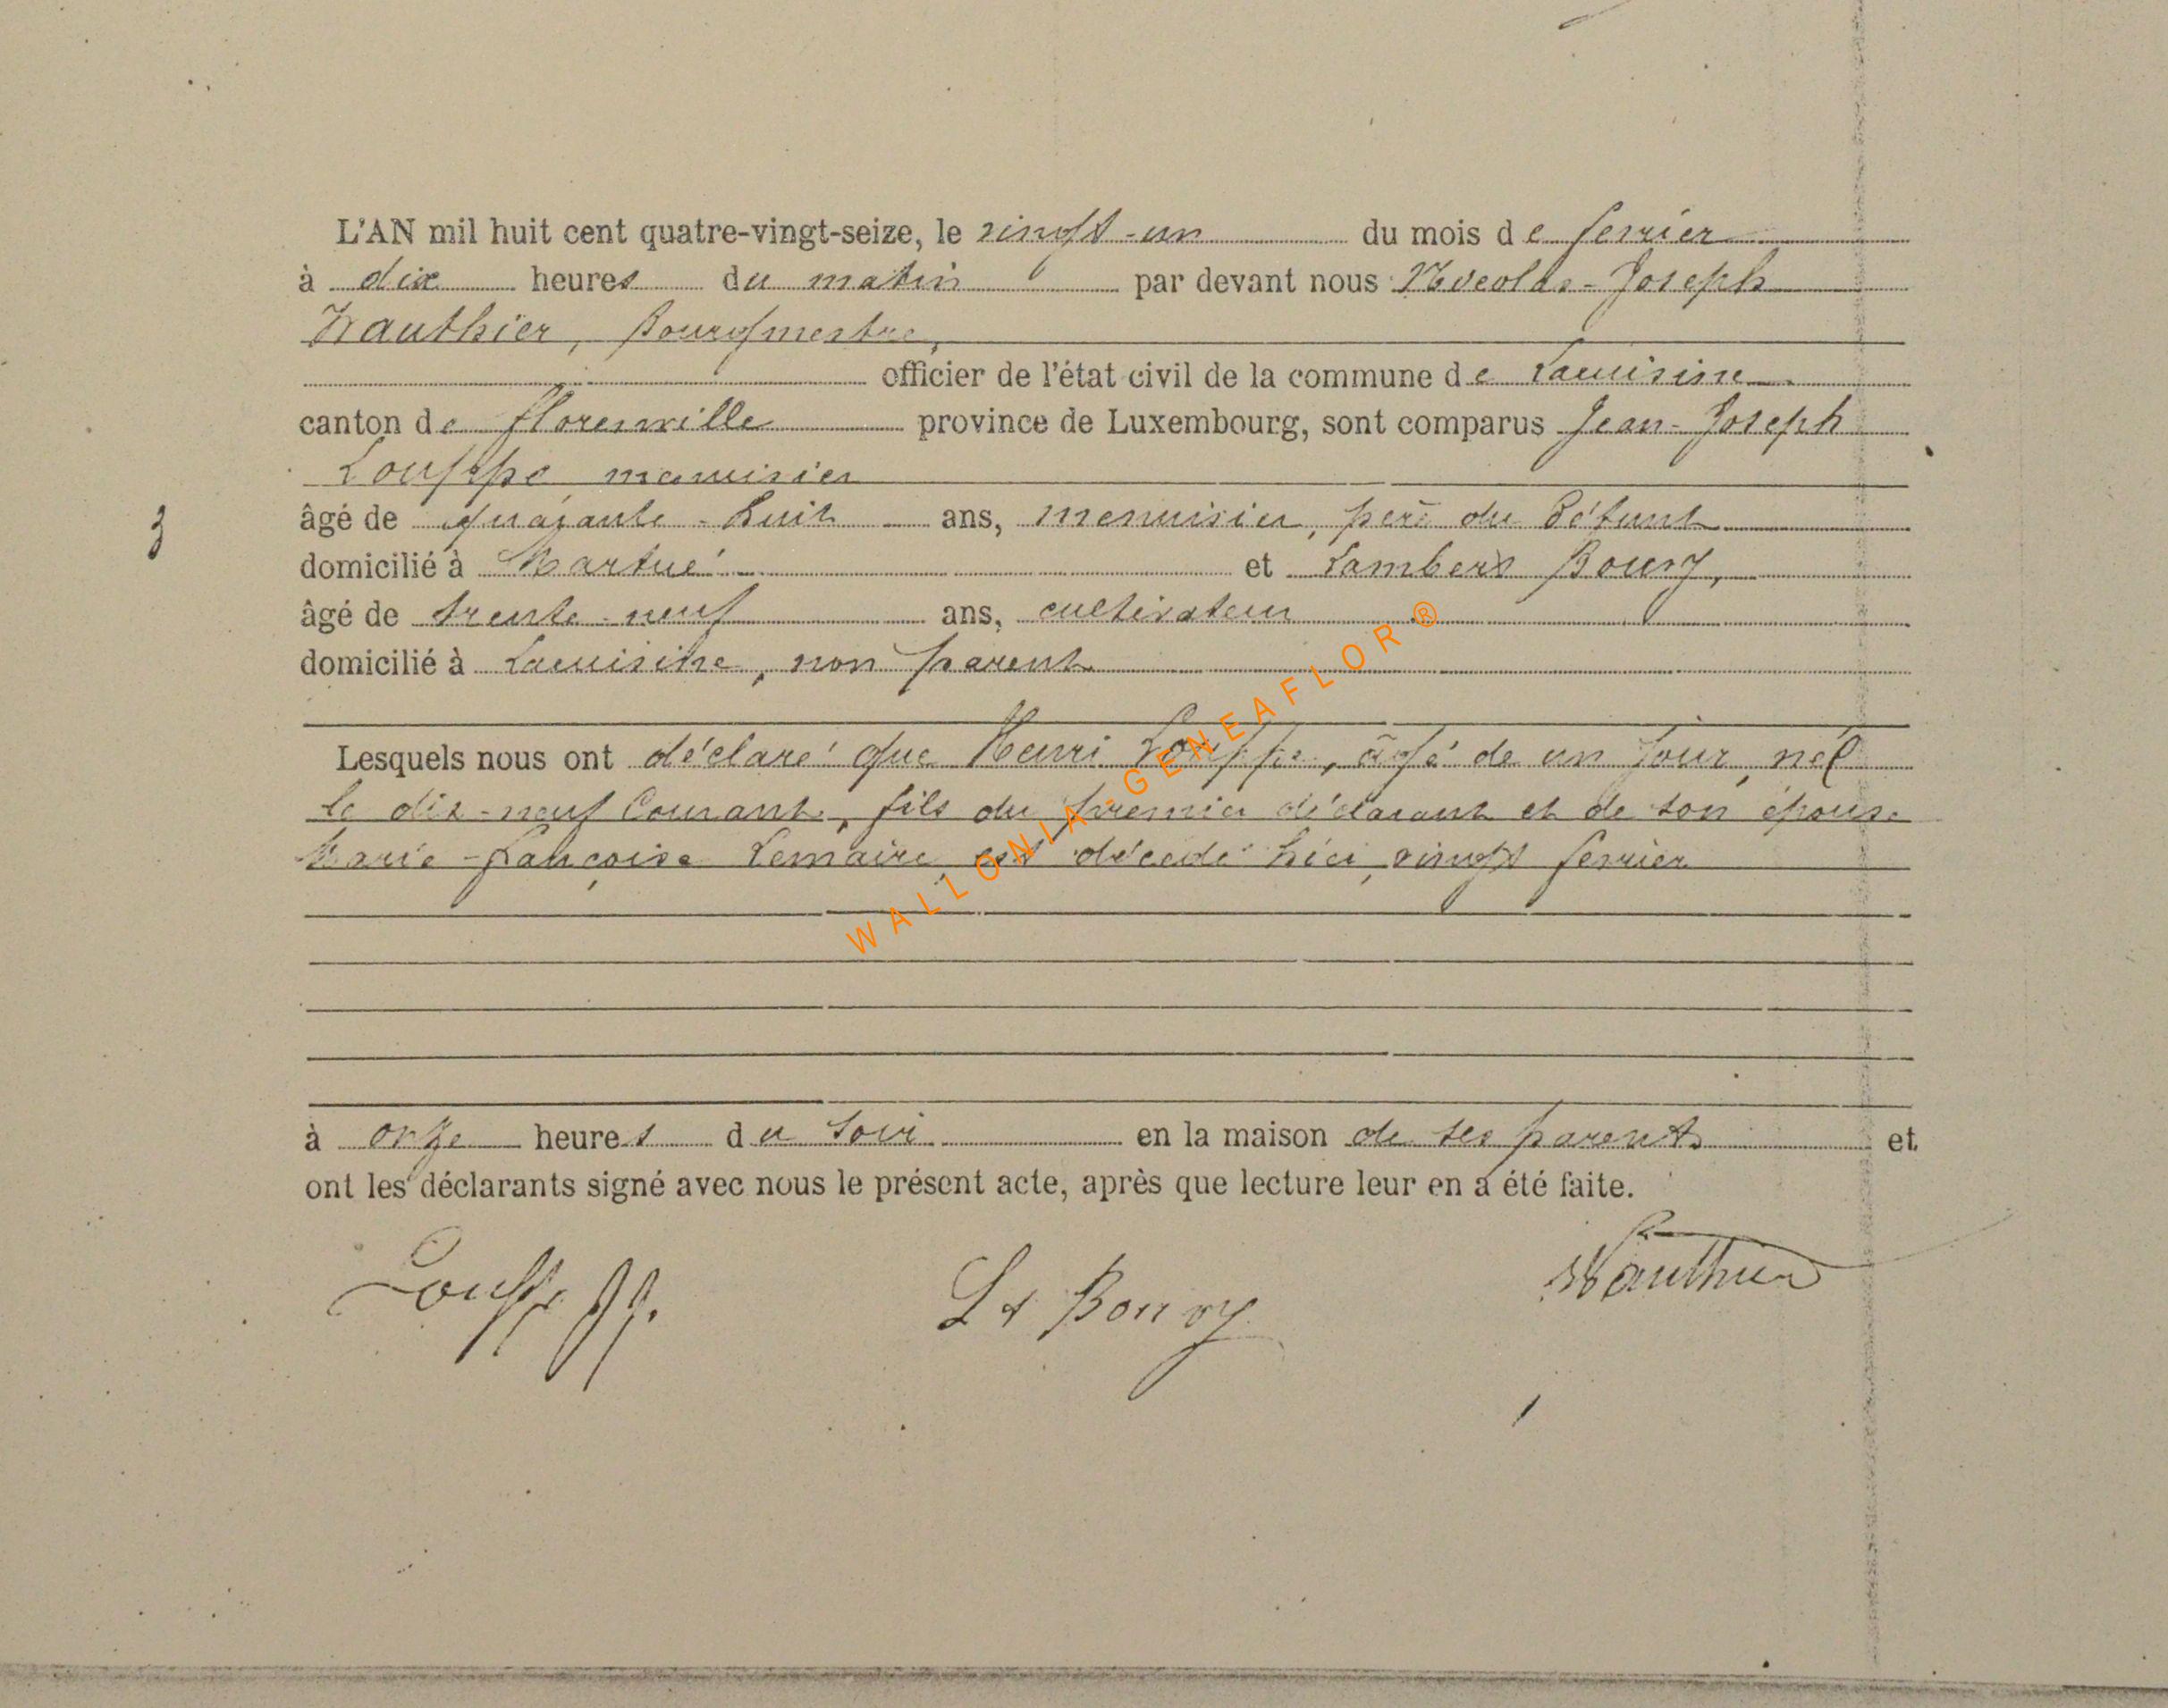 L'AN mil huit cent quatre-vingt-seize, le vingt-un du mois de fevrier
à dix heures du matin par devant nous Nicolas-Joseph
Wauthier, Bourgmestre,
officier de l'état civil de la commune de Lacuisine
canton de florenville province de Luxembourg, sont comparus Jean-Joseph
Louppe menuisier
âgé de quarante-huit ans, menuisier, père du défunt
3
domicilié à Martué et Lambert Boury,
âgé de trente-neuf ans, cultivateur
domicilié à Lacuisine, non parent
Lesquels nous ont déclaré que Henri Louppe, âgé de un jour, né
le dix-neuf Courant, fils du premier déclarant et de son épouse
Marie-françoise Lemaire, est décédé hier, vingt fevrier
à onze heures du soir en la maison de ses parents et
ont les déclarants signé avec nous le présent acte, après que lecture leur en a été faite.
Louppe JJ. Lt Boury Wauthier
WALLONIA-GENEAFLOR ®